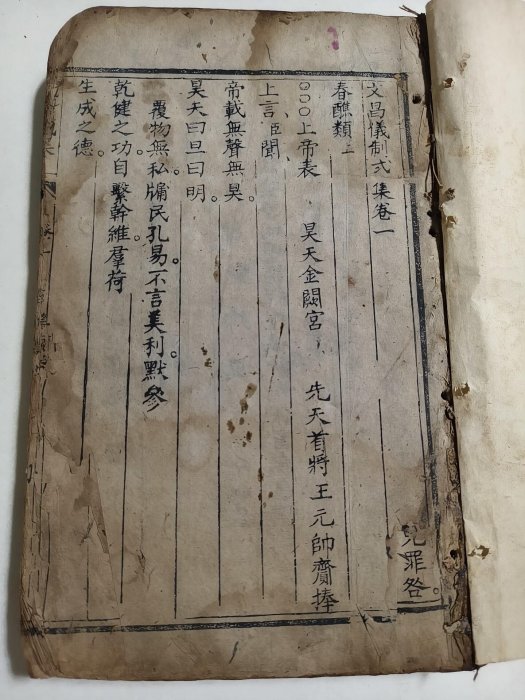 文昌儀制式集卷一
免罪咎。
春醮類上
○○○上帝表、昊天金闕宮、先天首將王元帥賫捧
上言、臣聞、
帝載無聲無臭。
昊天曰旦曰明。
覆物無私牖民孔易。不言美利默參
乾健之功。自繫幹維羣荷
生成之德。